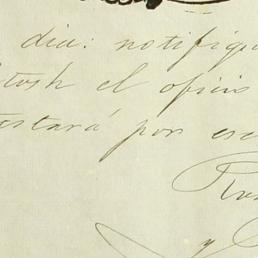 dia: notifiqu
tosh el oficio
estará por es
y